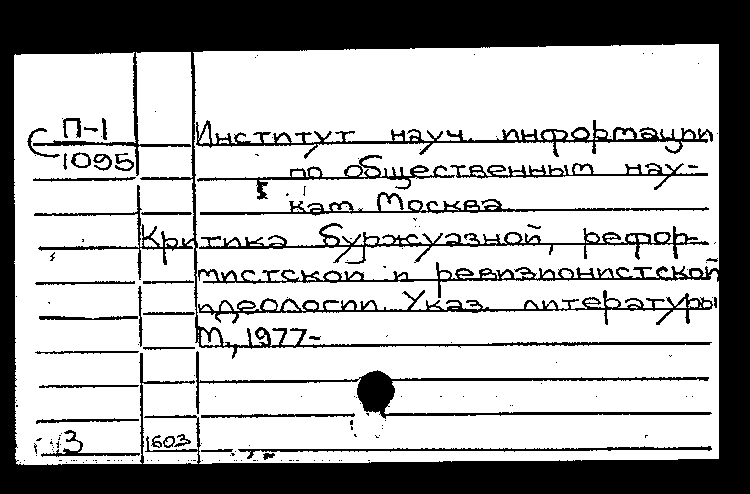 П-1
1095
Институт науч. информации
по общественным нау-
кам. Москва
Критика буржуазной, рефор-
мистской и ревизионистской
идеологии. Указ. литературы
М., 1977-
3 1603